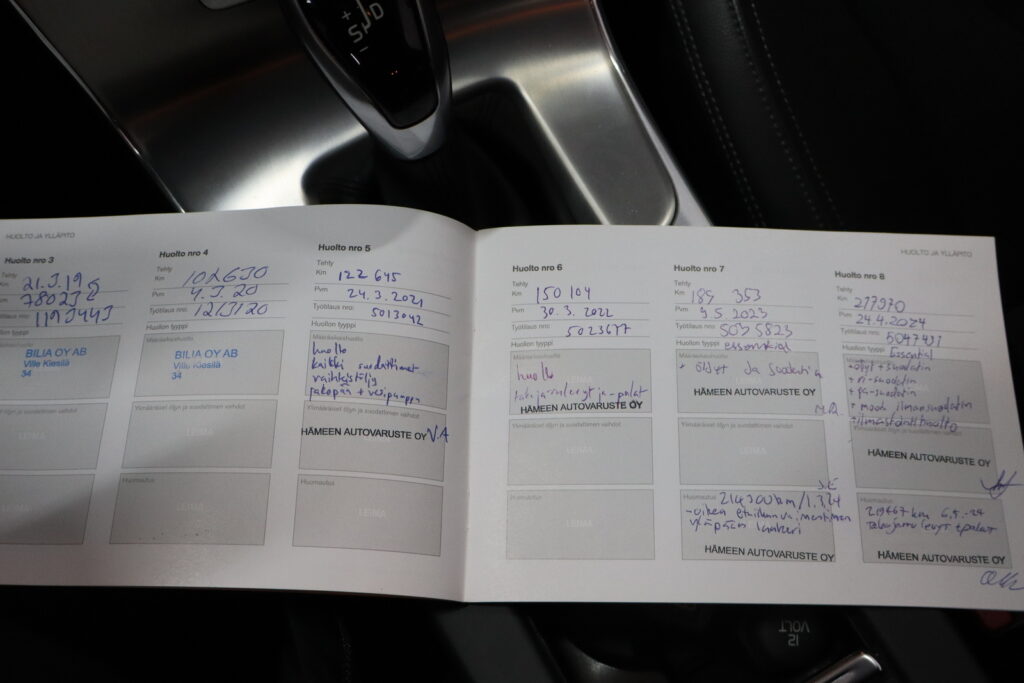 +
S D
HUOLTO JA YLLÄPITO
Huolto nro 3
Tehty
Km
21.3.19
78023
Työtilaus nro:
Huollon tyyppi
BILIA OY AB
Ville Kiesilä
34
Ylimääräiset öljyn ja suodattimen vaihdot
Huomautus
Huolto nro 4
Tehty
Km 102630
Pvm 4.3.20
Työtilaus nro:
Huollon tyyppi
Määräaikaishuolto
BILIA OY AB
Ville Kiesilä
34
Ylimääräiset öljyn ja suodattimen vaihdot
Huomautus
Huolto nro 5
Tehty
Km 122 645
Pvm 24.3.2021
Työtilaus nro: 5013042
Huollon tyyppi
Määräaikaishuolto
huolto
kaikki suodattimet
vaihteistöljy
jakopää + vesipumppu
Ylimääräiset öljyn ja suodattimen vaihdot
HÄMEEN AUTOVARUSTE OY
Huomautus
LEIMA
Huolto nro 6
Tehty
Km 150 104
Pvm 30.3.2022
Työtilaus nro: 5023677
Huollon tyyppi
Määräaikaishuolto
huolto
HÄMEEN AUTOVARUSTE OY
Ylimääräiset öljyn ja suodattimen vaihdot
LEIMA
Huomautus
LEIMA
HUOLTO JA YLLÄPITO
Huolto nro 7
Tehty
Km 189 353
Pvm 9.5.2023
Työtilaus nro: 5035823
Huollon tyyppi essential
Määräaikaishuolto
+ öljyt ja suodatin
HÄMEEN AUTOVARUSTE OY
Ylimääräiset öljyn ja suodattimen vaihdot
LEIMA
Huomautus 214300km/1.3.24
HÄMEEN AUTOVARUSTE OY
Huolto nro 8
Tehty
Km 217970
Pvm 24.4.2024
Työtilaus nro:
Huollon tyyppi Essential
Määräaikaishuolto
+ öljyt + suodatin
+ ri-suodatin
+ pa-suodatin
+ moot. ilmansuodatin
+ ilmastointihuolto
HÄMEEN AUTOVARUSTE OY
Huomautus
HÄMEEN AUTOVARUSTE OY
12
VOLT